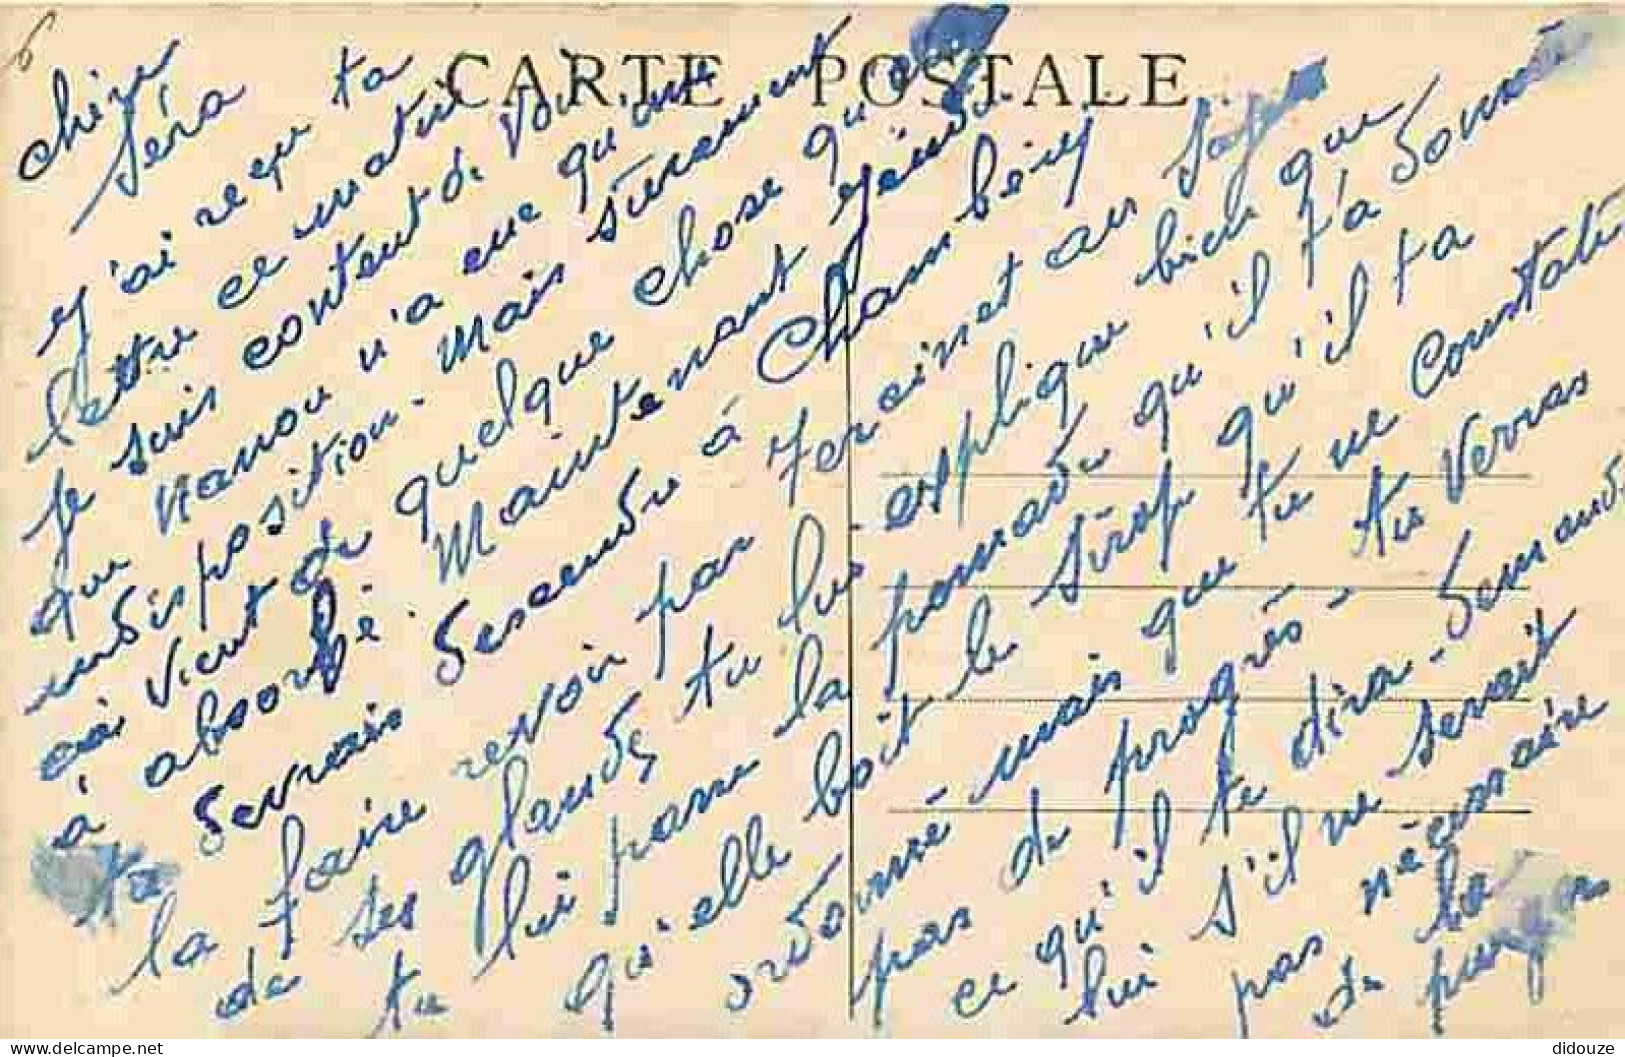 6
CARTE POSTALE
Chère
Séra
J'ai reçu ta
lettre ce matin
Je suis content de voir
que Nanou n'a eue qu'une
indisposition - Mais surement
vient de quelque chose qu'elle
à absorbé. Maintenant
devrais descendre à Chambéry
la faire revoir par
de ses glandes tu lui explique bien que
tu lui passe la pomade qu'il t'a donné
qu'elle boit le sirop qu'il ta
ordonné - mais que tu ne constate
pas de progrès - tu verras
ce qu'il te dira - demande
lui s'il ne serait
pas nécessaire
de la
didouze